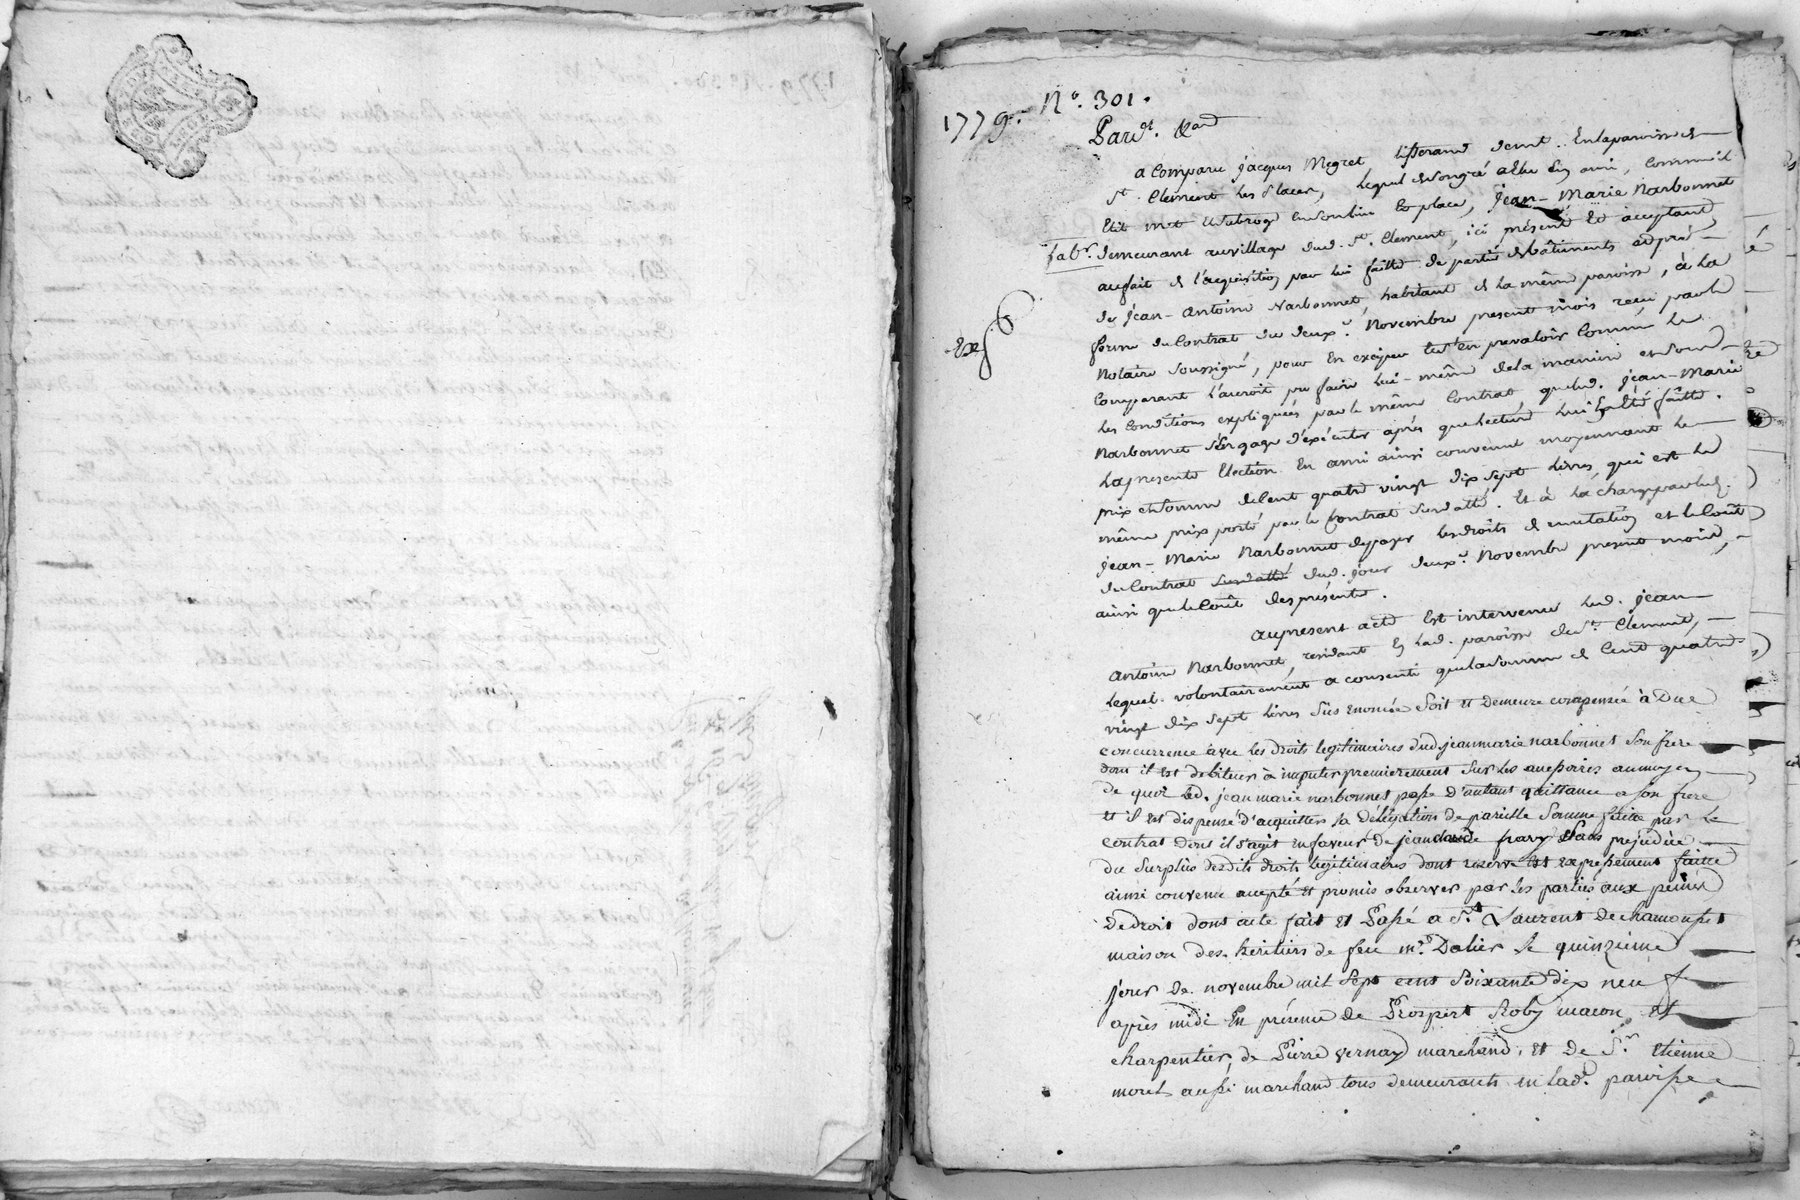 1779. N.º 301.
Pard.t &amp;a
a Comparu Jacques Megret tisserand demt. En la paroisse de
St. Clement les Places, lequel de son gré a Elu En ami, Comme il
Elit met et subroge En son lieu Et place, Jean-Marie Narbonnet
fabr. demeurant au village dud. St. Clement, ici présent Et acceptant,
au fait de l'acquisition par lui faitte de partie de bâtiments et prés
de Jean-Antoine Narbonnet, habitant de la même paroisse, à la
forme du Contrat du deux.e Novembre present mois reçu par le
Exp
Notaire soussigné, pour En exciper et s'en prevaloir Comme le
Comparant l'auroit pu faire lui-même de la maniere et sous
les Conditions expliquées par le même Contrat, que led. Jean-Marie
Narbonnet s'Engage d'exécuter après que lecture lui En a été faitte.
La presente Election En ami ainsi convenue moyennant le
prix et somme de Cent quatre vingt dix sept livres, qui est le
même prix porté par le Contrat susdatté. Et à la charge par led.
Jean-Marie Narbonnet de payer les droits de mutation et le Coût
du Contrat susdatté dud. jour deux.e Novembre present mois,
ainsi que le Coût des présentes.
au present acte Est intervenu led. Jean
Antoine Narbonnet, residant En lad. paroisse de St. Clement,
Lequel volontairement a consenti que la somme de Cent quatre
vingt dix sept livres sus enoncée soit et demeure compensée à Due
concurrence avec les droits legitimaires dud. jean marie narbonnet son frere
dont il est debiteur à imputer premierement sur les accessoires au moyen
de quoi led. jean marie narbonnet passe d'autant quittance a son frere
et il est dispensé d'acquitter la délégation de pareille somme faitte par le
contrat dont il s'agit en faveur de jean claude frary sans prejudice
du surplus desdits droits legitimaires dont reserve est expressement faitte
ainsi convenu accepté et promis observer par les parties aux peines
de droit dont acte fait et Passé a St. Laurent de chamousset
maison des heritiers de feu me. Dalier le quinzieme
jour de novembre mil sept cent soixante dix neuf
après midi En présence de Prospert Roby macon et
charpentier, de Pierre vernay marchand, et de Sr. etienne
morel aussi marchand tous demeurants en lad. paroisse